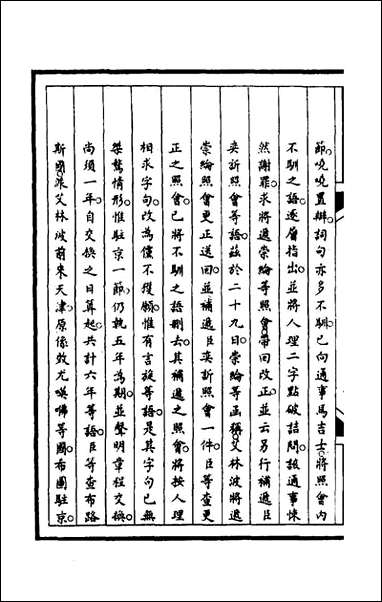 節曉曉置辯詞句亦多不馴已向通事馬吉士將照會內
不馴之語逐層指出並將人理二字點破詰問該通事悚
然謝罪求將遞崇綸等照會帶回改正並云另行補遞臣
奕訢照會等語茲於二十九日崇綸等函稱艾林波將遞
崇綸照會更正送回並補遞臣奕訢照會一件臣等查更
正之照會已將不馴之語刪去其補遞之照會將按人理
相求字句改為儻不獲願惟有言旋等語是其字句已無
桀驁情形惟駐京一節仍執五年為期並聲明章程交換
尚須一年自交換之日算起共計六年等語臣等查布路
斯國派艾林波前來天津原係效尤嘆咈等國布圖駐京